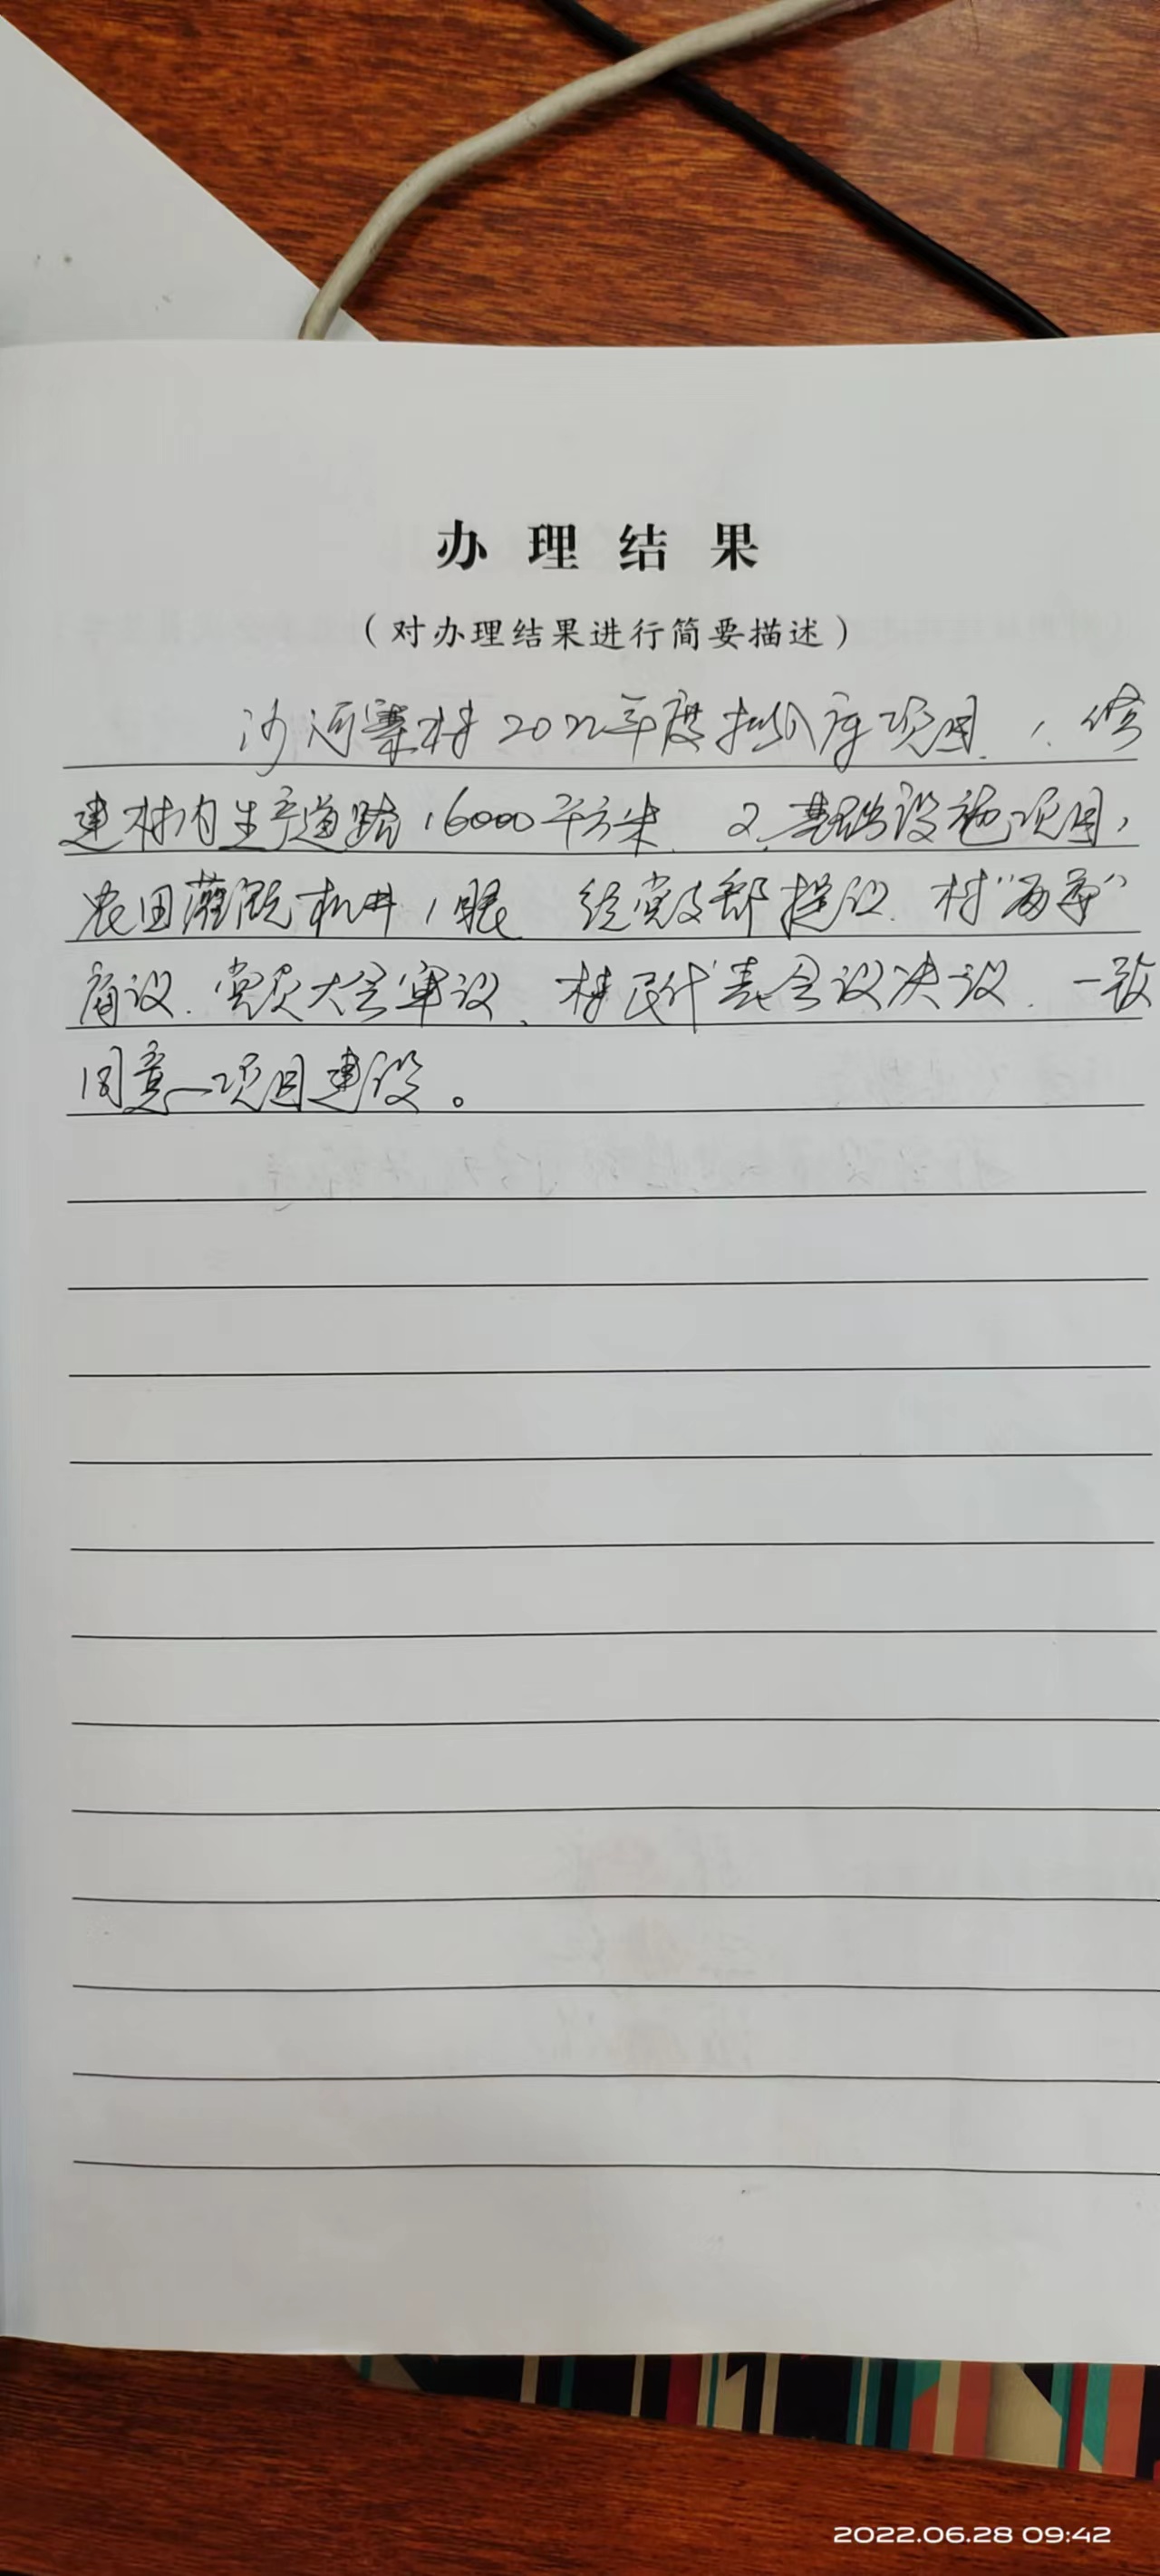 办理结果
（对办理结果进行简要描述）
沙河寨村2022年度拟入库项目、1、修
建村内生产道路16000平方米、2、基础设施项目，
农田灌溉机井1眼 经党支部提议、村“两委”
商议、党员大会审议、村民代表会议决议、一致
同意项目建设。
2022.06.28 09:42